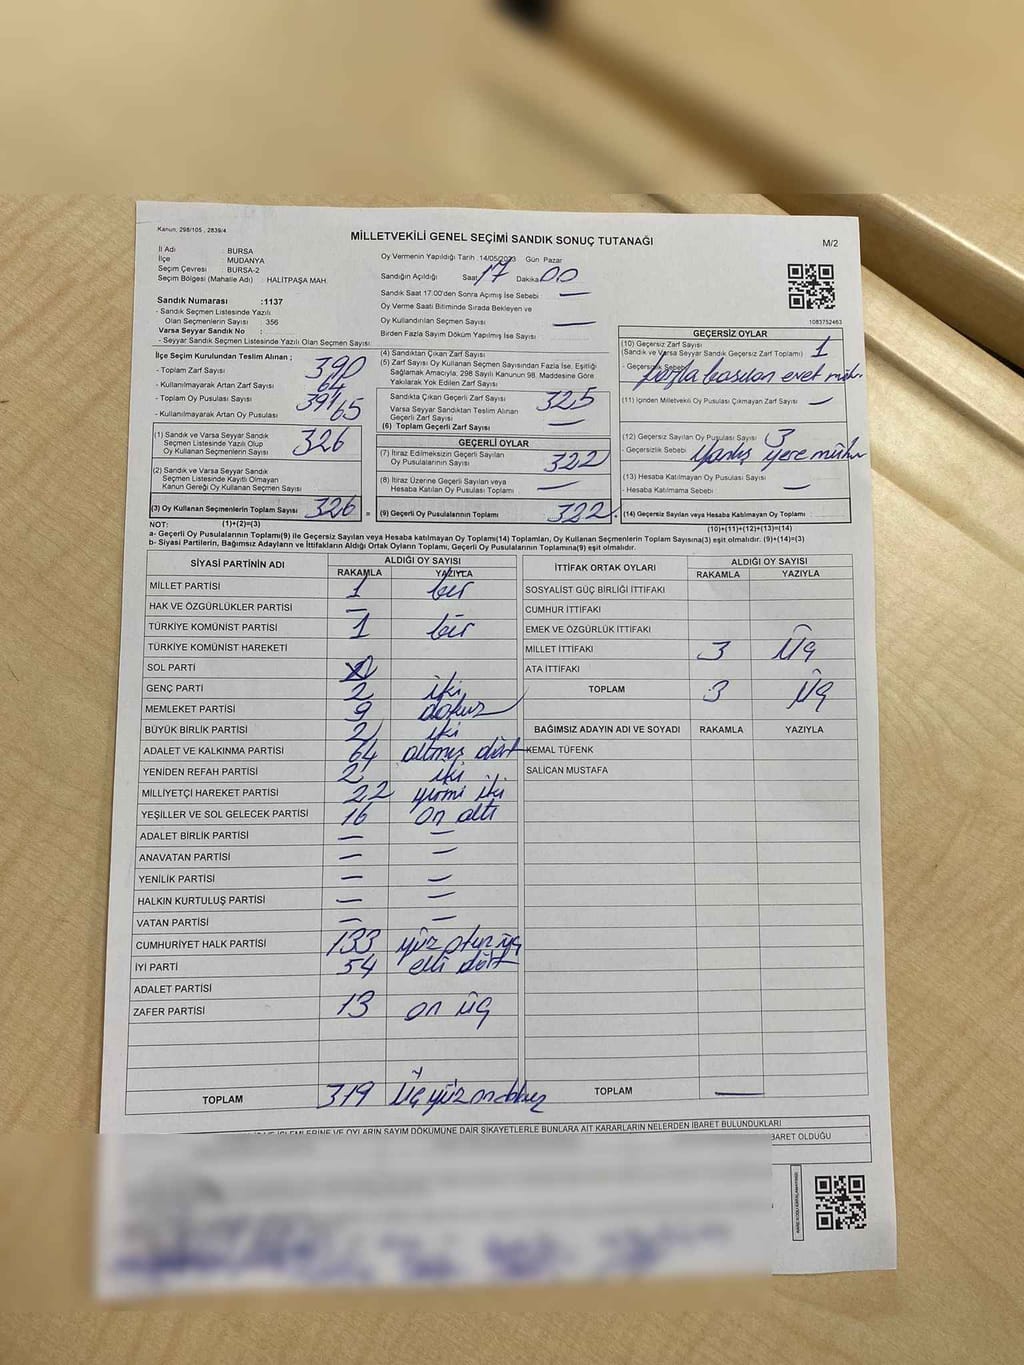 Kanun, 298/105 , 2839/4
MİLLETVEKİLİ GENEL SEÇİMİ SANDIK SONUÇ TUTANAĞI
M/2
İl Adı : BURSA
İlçe : MUDANYA
Seçim Çevresi : BURSA-2
Seçim Bölgesi (Mahalle Adı) : HALİTPAŞA MAH.
Sandık Numarası :1137
- Sandık Seçmen Listesinde Yazılı
Olan Seçmenlerin Sayısı : 356
Varsa Seyyar Sandık No :
- Seyyar Sandık Seçmen Listesinde Yazılı Olan Seçmen Sayısı:
Oy Vermenin Yapıldığı Tarih :14/05/2023 Gün Pazar
Sandığın Açıldığı Saat 17 Dakika 00
Sandık Saat 17:00'den Sonra Açımış İse Sebebi : —
Oy Verme Saati Bitiminde Sırada Bekleyen ve
Oy Kullandırılan Seçmen Sayısı : —
Birden Fazla Sayım Döküm Yapılmış İse Sayısı :
1083752463
İlçe Seçim Kurulundan Teslim Alınan ;
- Toplam Zarf Sayısı : 390
- Kullanılmayarak Artan Zarf Sayısı : 64
- Toplam Oy Pusulası Sayısı : 391
- Kullanılmayarak Artan Oy Pusulası : 65
(1) Sandık ve Varsa Seyyar Sandık
Seçmen Listesinde Yazılı Olup
Oy Kullanan Seçmenlerin Sayısı 326
(2) Sandık ve Varsa Seyyar Sandık
Seçmen Listesinde Kayıtlı Olmayan
Kanun Gereği Oy Kullanan Seçmen Sayısı
(3) Oy Kullanan Seçmenlerin Toplam Sayısı 326 =
(1)+(2)=(3)
(4) Sandıktan Çıkan Zarf Sayısı
(5) Zarf Sayısı Oy Kullanan Seçmen Sayısından Fazla İse, Eşitliği
Sağlamak Amacıyla; 298 Sayılı Kanunun 98. Maddesine Göre
Yakılarak Yok Edilen Zarf Sayısı
Sandıkta Çıkan Geçerli Zarf Sayısı 325
Varsa Seyyar Sandıktan Teslim Alınan
Geçerli Zarf Sayısı
(6) Toplam Geçerli Zarf Sayısı —
GEÇERLİ OYLAR
(7) İtiraz Edilmeksizin Geçerli Sayılan
Oy Pusulalarının Sayısı 322
(8) İtiraz Üzerine Geçerli Sayılan veya
Hesaba Katılan Oy Pusulası Toplamı —
(9) Geçerli Oy Pusulalarının Toplamı 322 +
GEÇERSİZ OYLAR
(10) Geçersiz Zarf Sayısı 1
(Sandık ve Varsa Seyyar Sandık Geçersiz Zarf Toplamı)
- Geçersizlik Sebebi fazla basılan evet mühr
(11) İçinden Milletvekili Oy Pusulası Çıkmayan Zarf Sayısı —
(12) Geçersiz Sayılan Oy Pusulası Sayısı 3
- Geçersizlik Sebebi : Yanlış yere mühür
(13) Hesaba Katılmayan Oy Pusulası Sayısı :
- Hesaba Katılmama Sebebi : —
(14) Geçersiz Sayılan veya Hesaba Katılmayan Oy Toplamı :
(10)+(11)+(12)+(13)=(14)
NOT:
a- Geçerli Oy Pusulaları Toplamı(9) ile Geçersiz Sayılan veya Hesaba Katılmayan Oy Toplamı(14) Toplamları, Oy Kullanan Seçmenlerin Toplam Sayısına(3) eşit olmalıdır. (9)+(14)=(3)
b- Siyasi Partilerin, Bağımsız Adayların ve İttifakların Aldığı Ortak Oyların Toplamı, Geçerli Oy Pusulalarının Toplamına(9) eşit olmalıdır.
SİYASİ PARTİNİN ADI ALDIĞI OY SAYISI
RAKAMLA YAZIYLA
MİLLET PARTİSİ 1 bir
HAK VE ÖZGÜRLÜKLER PARTİSİ —
TÜRKİYE KOMÜNİST PARTİSİ 1 bir
TÜRKİYE KOMÜNİST HAREKETİ
SOL PARTİ
GENÇ PARTİ 2 iki
MEMLEKET PARTİSİ 9 dokuz
BÜYÜK BİRLİK PARTİSİ 2 iki
ADALET VE KALKINMA PARTİSİ 64 altmış dört
YENİDEN REFAH PARTİSİ 2 iki
MİLLİYETÇİ HAREKET PARTİSİ 22 yirmi iki
YEŞİLLER VE SOL GELECEK PARTİSİ 16 on altı
ADALET BİRLİK PARTİSİ — —
ANAVATAN PARTİSİ — —
YENİLİK PARTİSİ — —
HALKIN KURTULUŞ PARTİSİ — —
VATAN PARTİSİ — —
CUMHURİYET HALK PARTİSİ 133 yüz otuz üç
İYİ PARTİ 54 elli dört
ADALET PARTİSİ
ZAFER PARTİSİ 13 on üç
TOPLAM 319 Üç yüz on dokuz
İTTİFAK ORTAK OYLARI ALDIĞI OY SAYISI
RAKAMLA YAZIYLA
SOSYALİST GÜÇ BİRLİĞİ İTTİFAKI
CUMHUR İTTİFAKI
EMEK VE ÖZGÜRLÜK İTTİFAKI
MİLLET İTTİFAKI 3 Üç
ATA İTTİFAKI
TOPLAM 3 Üç
BAĞIMSIZ ADAYIN ADI VE SOYADI RAKAMLA YAZIYLA
KEMAL TÜFENK
SALİCAN MUSTAFA
TOPLAM —
İŞLEMLERİNE VE OYLARIN SAYIM DÖKÜMÜNE DAİR ŞİKAYETLERLE BUNLARA AİT KARARLARIN NELERDEN İBARET BULUNDUKLARI
BARET OLDUĞU